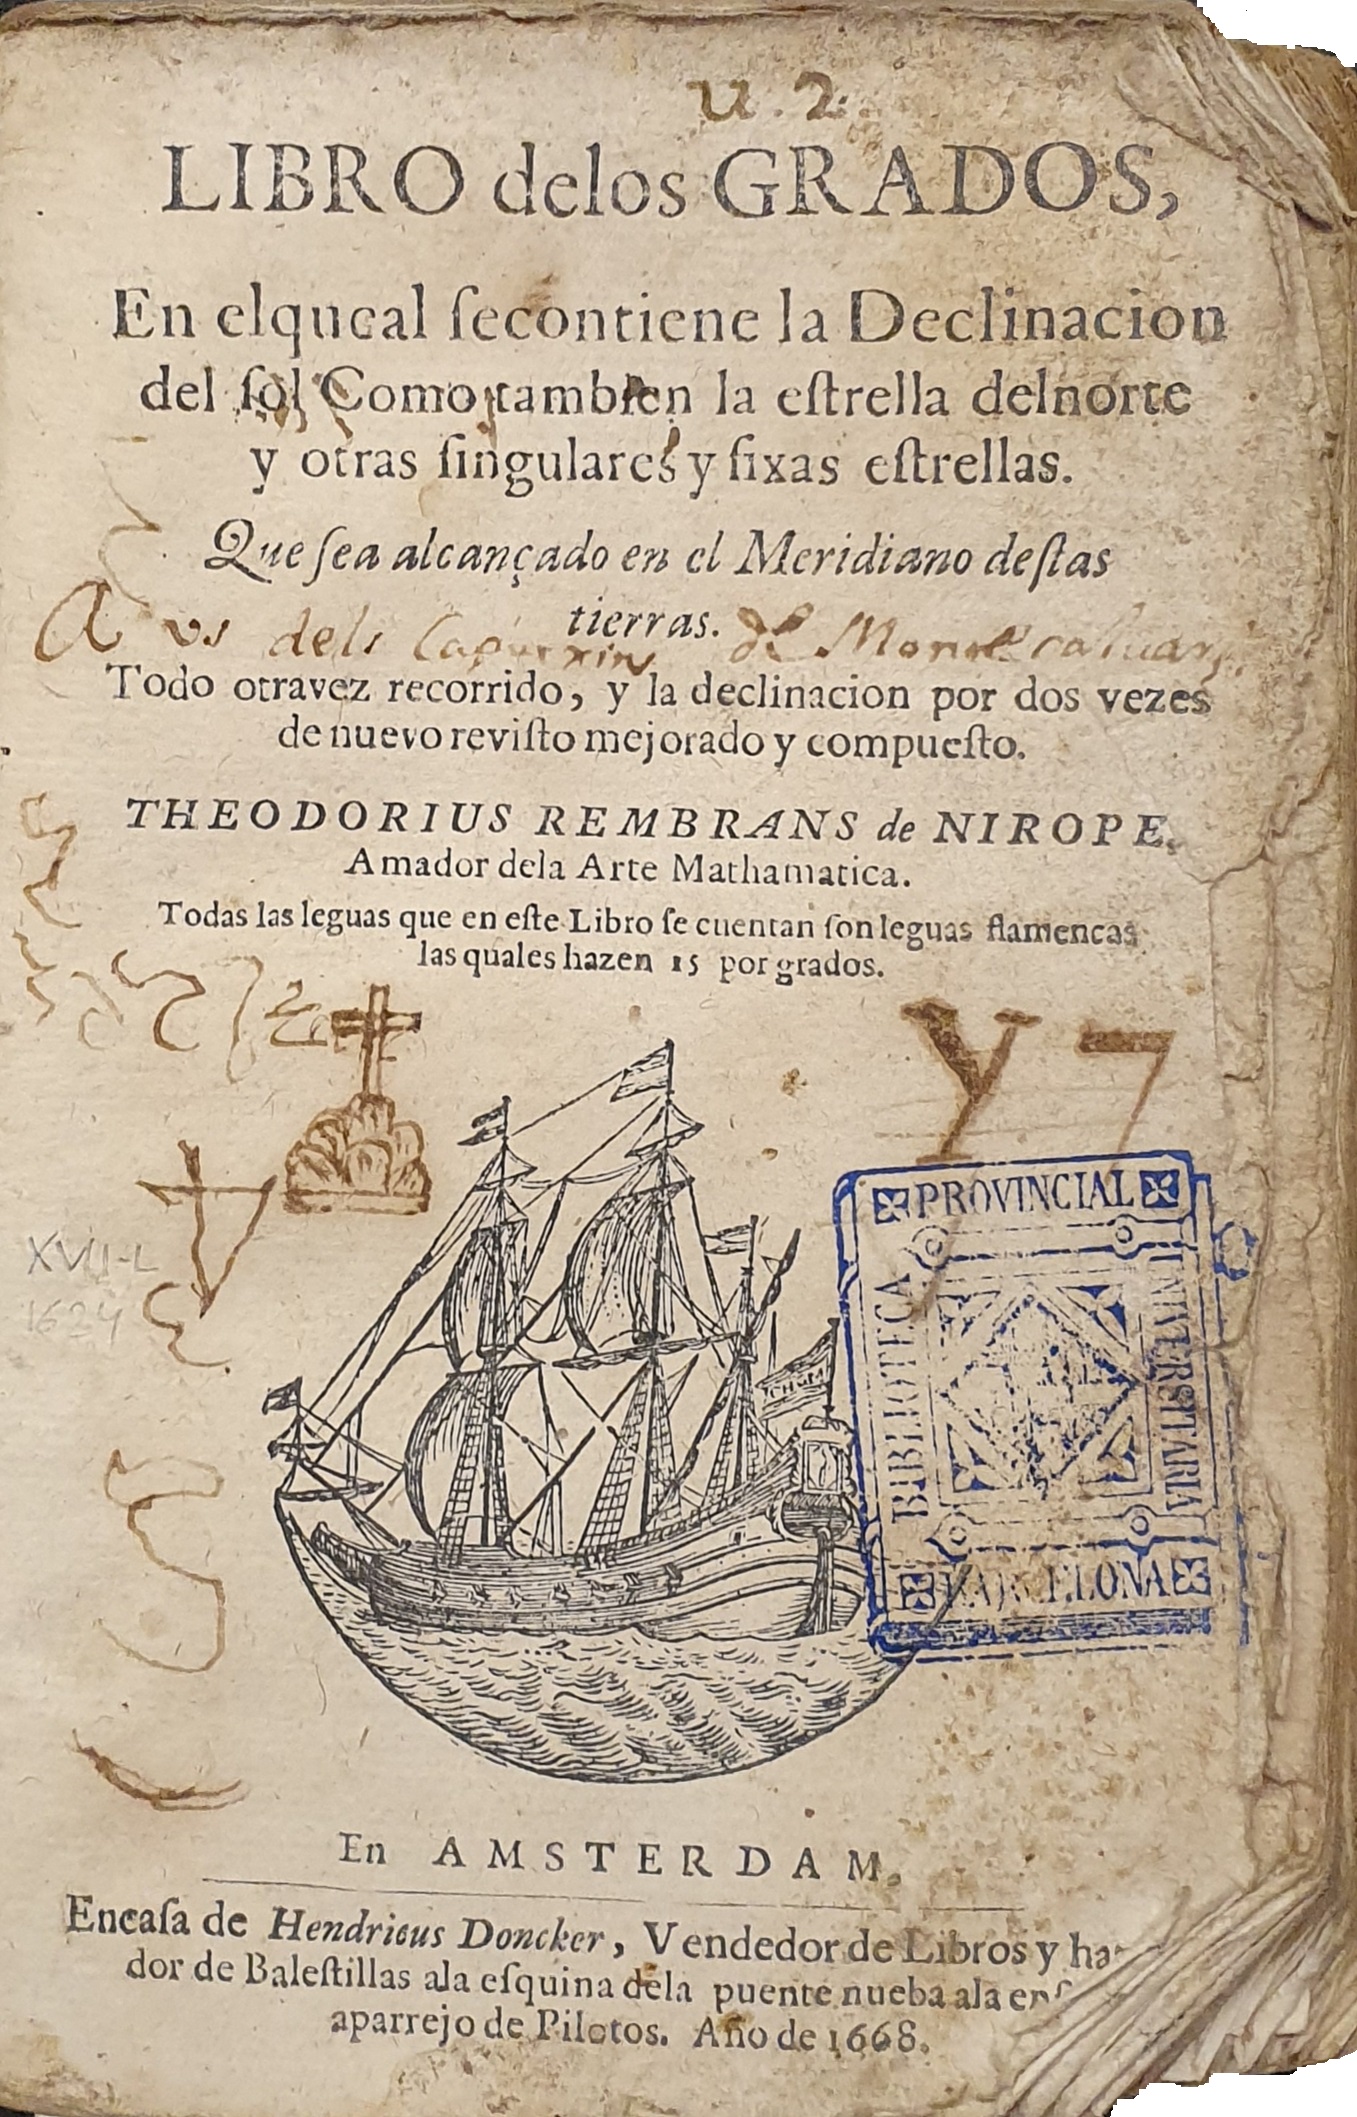 u. 2.
LIBRO delos GRADOS,
En elqueal ſecontiene la Declinacion
del ſol Como tambien la eſtrella delnorte
y otras ſingulares y fixas eſtrellas.
Que ſea alcançado en el Meridiano deſtas
tierras.
A us dels Caputxins de Montecalvari
Todo otravez recorrido, y la declinacion por dos vezes
de nuevo reviſto mejorado y compueſto.
THEODORIUS REMBRANS de NIROPE,
Amador dela Arte Mathamatica.
Todas las leguas que en eſte Libro ſe cuentan ſon leguas flamencas
las quales hazen 15 por grados.
Y 7
XVII-L
1624
PROVINCIAL
UNIVERSITARIA
BIBLIOTECA
BARCELONA
En AMSTERDAM,
Encaſa de Hendricus Doncker, Vendedor de Libros y ha
dor de Baleſtillas ala eſquina dela puente nueba ala enſ
aparrejo de Pilotos. Año de 1668.